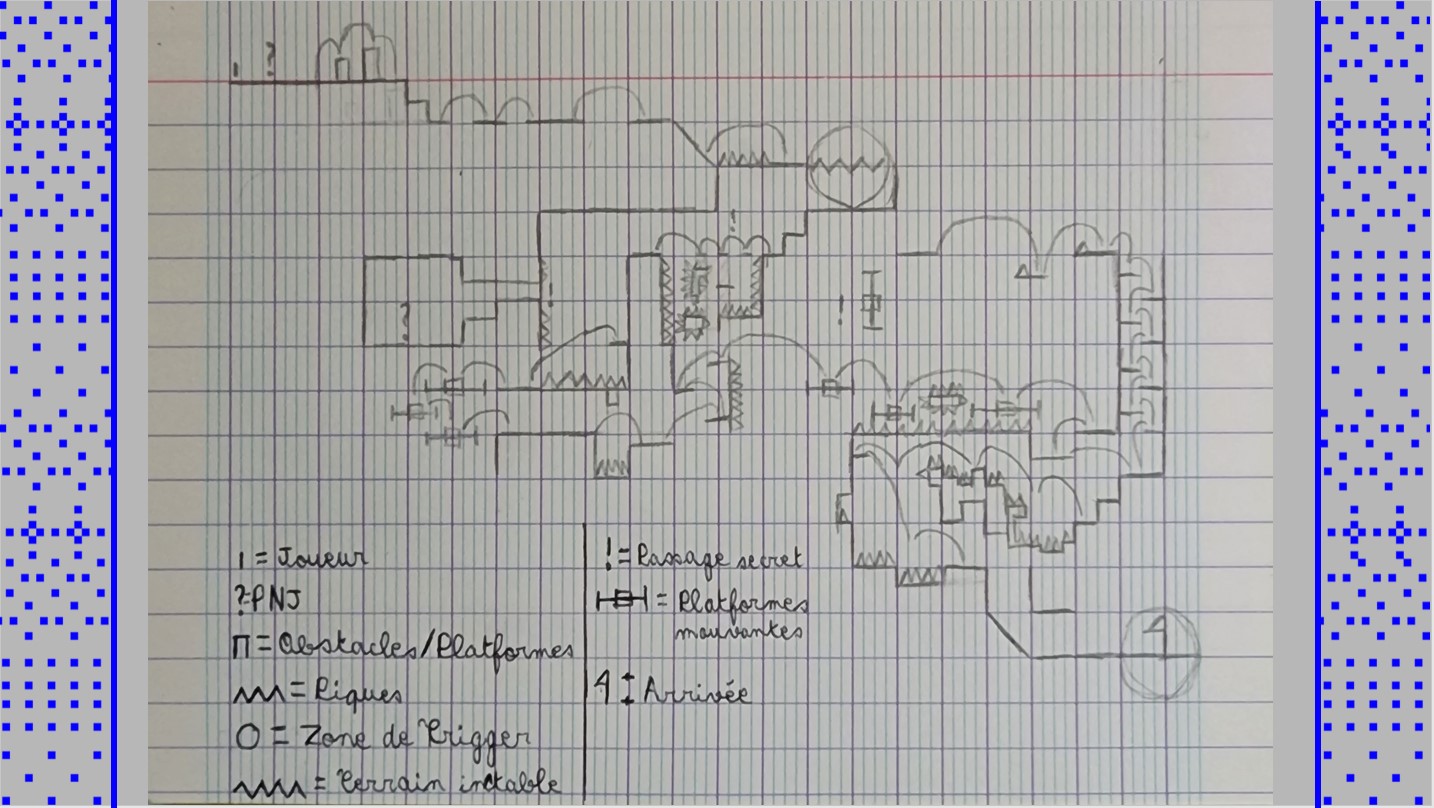 ?
?
!
!
!
!
4
I = Joueur
?=PNJ
Π = Obstacles/Platformes
= Piques
O = Zone de Trigger
= Terrain instable
! = Passage secret
= Platformes
mouvantes
4 : Arrivée